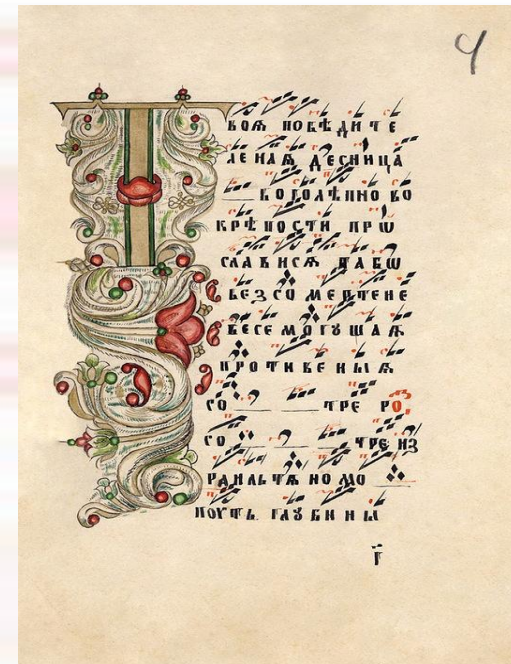 4
Твоѧ побѣдите
ленаѧ десница
боголѣпно во
крѣпости прѡ
слависѧ табѡ
безсомертене
весемогꙋщаѧ
противеныѧ
со тре ро
со тре из
раильтѧномо
поуть глꙋбины
г҃